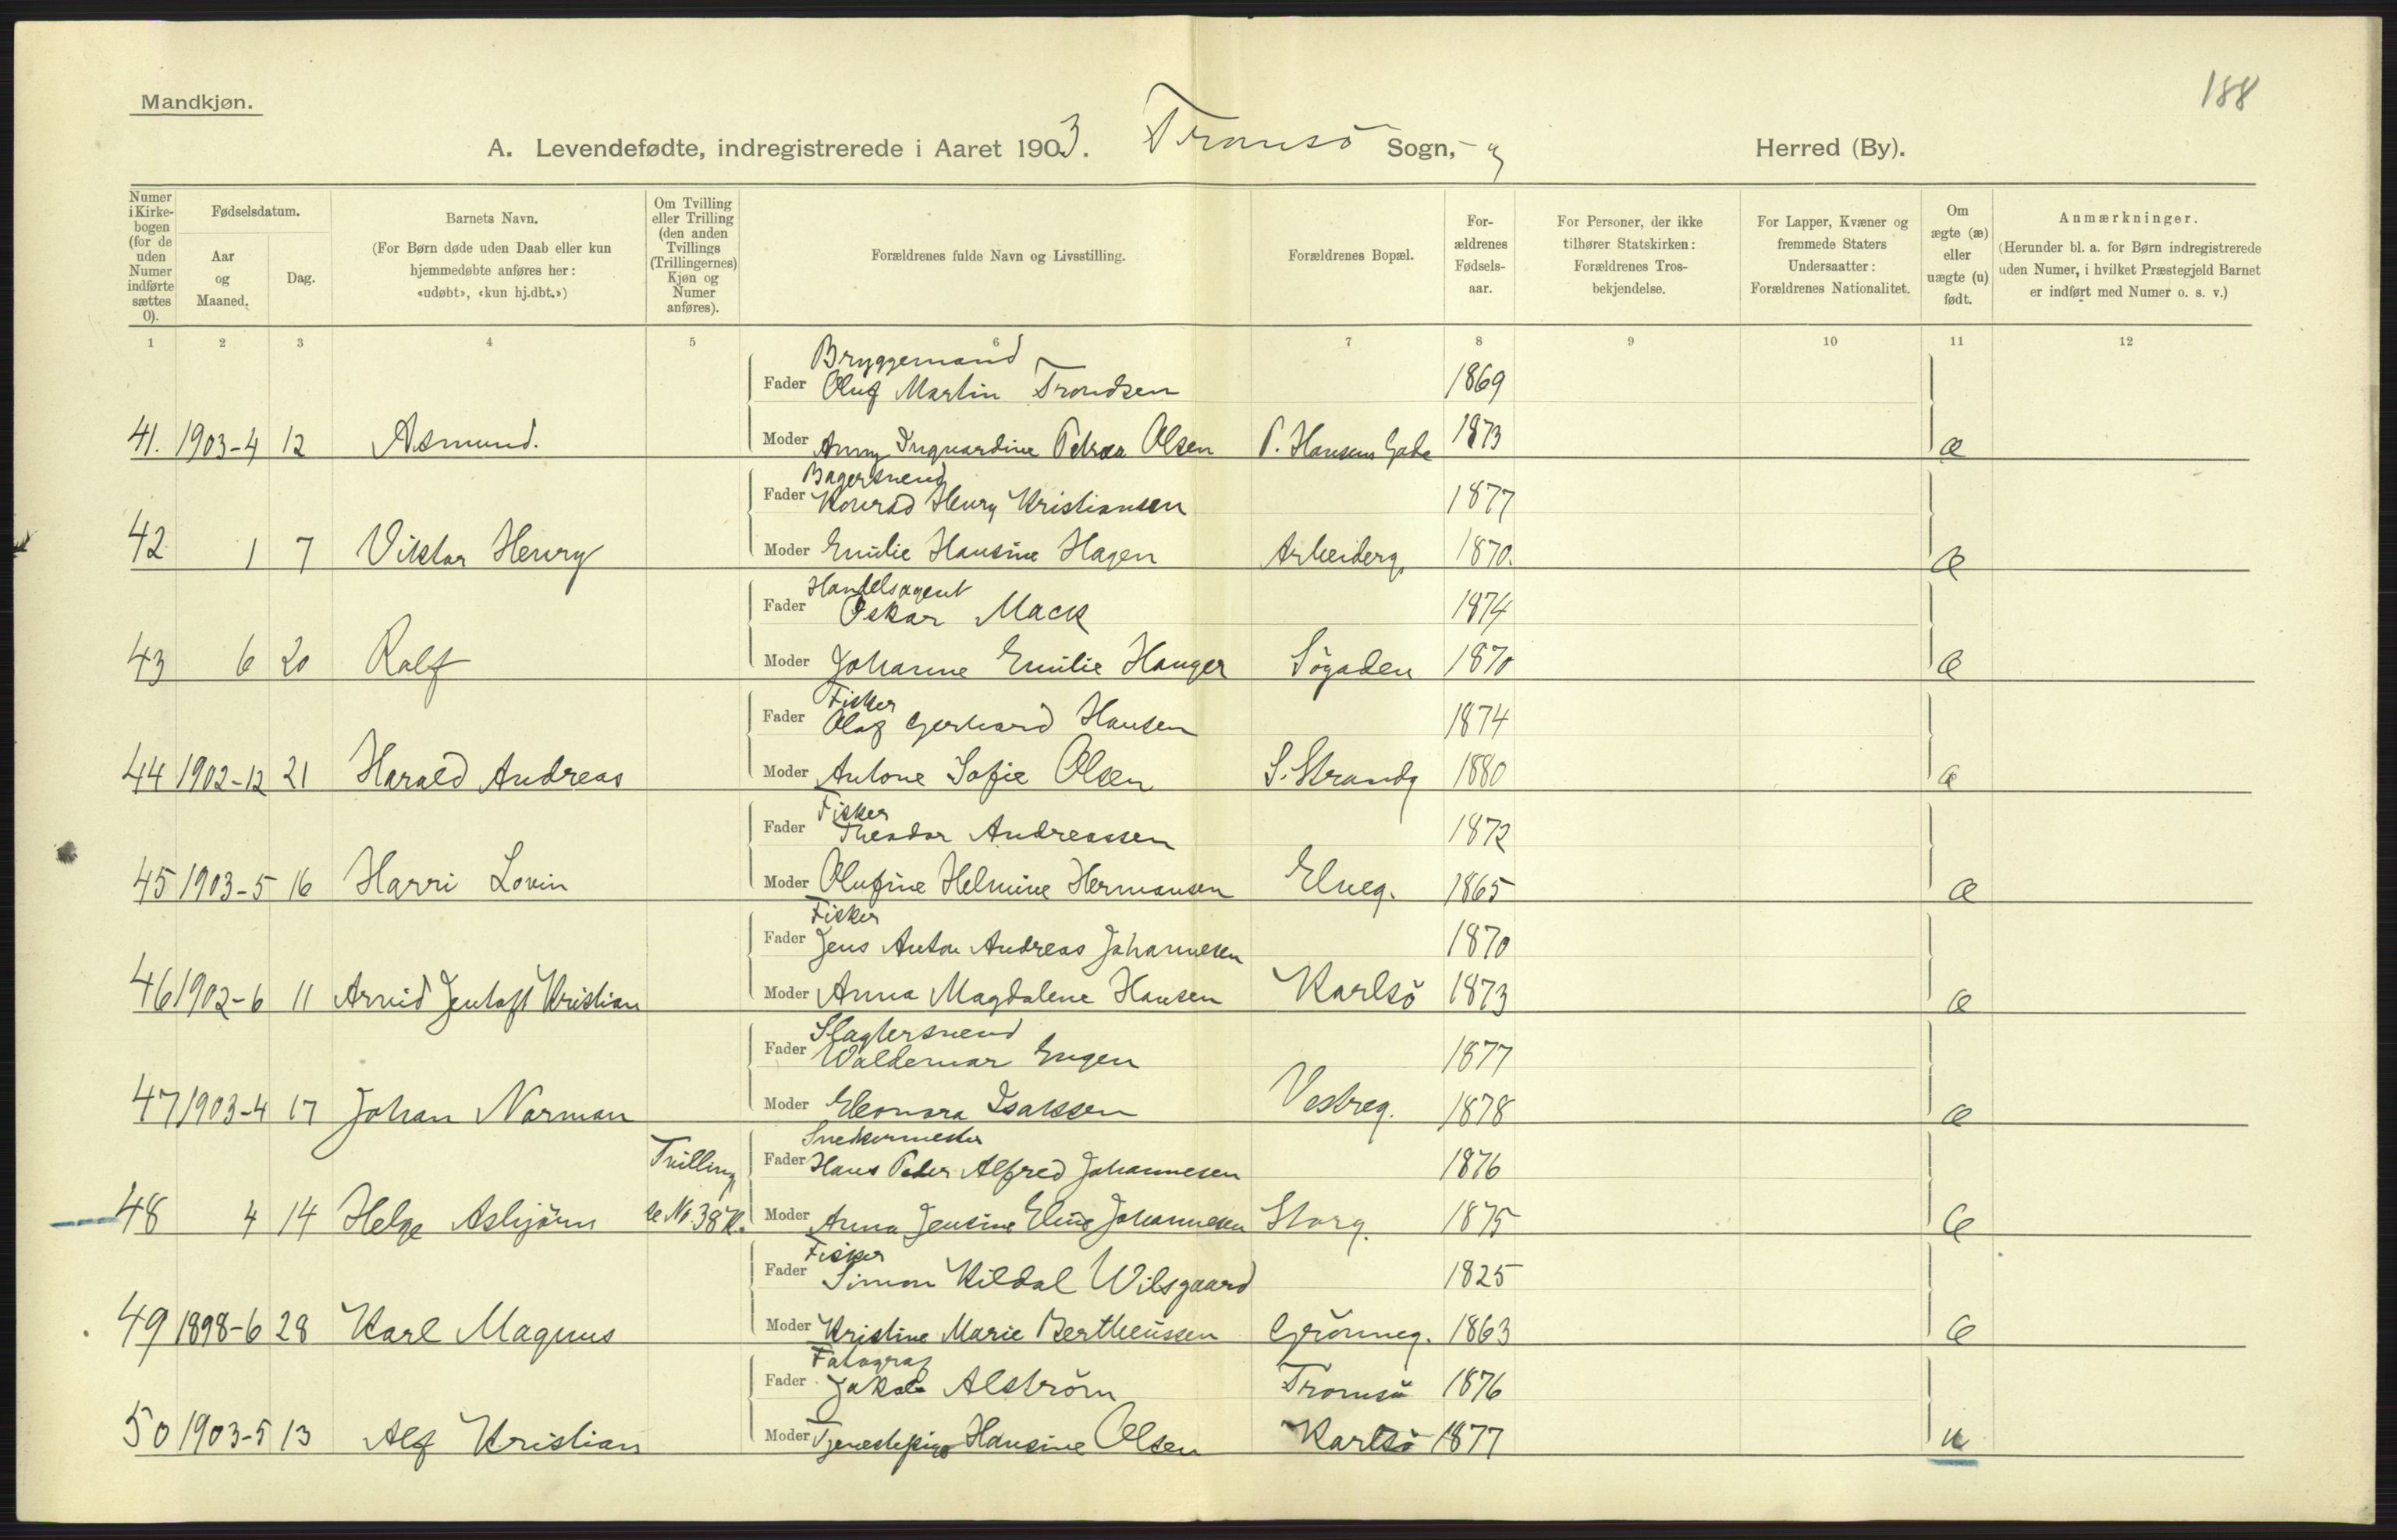 188
Mandkjøn.
A. Levendefødte, indregistrerede i Aaret 1903. Tromsö Sogn, Herred (By).
Numer i Kirke-bogen (for de uden Numer indførte sættes 0).
Fødselsdatum.
Aar og Maaned.
Dag.
Barnets Navn.
(For Børn døde uden Daab eller kun hjemmedøbte anføres her: «udøbt», «kun hj.dbt.»)
Om Tvilling eller Trilling (den anden Tvillings (Trillingernes) Kjøn og Numer anføres).
Forældrenes fulde Navn og Livsstilling.
Forældrenes Bopæl.
For-ældrenes Fødsels-aar.
For Personer, der ikke tilhører Statskirken: Forældrenes Tros-bekjendelse.
For Lapper, Kvæner og fremmede Staters Undersaatter: Forældrenes Nationalitet.
Om ægte (æ) eller uægte (u) født.
Anmærkninger.
(Herunder bl. a. for Børn indregistrerede uden Numer, i hvilket Præstegjeld Barnet er indført med Numer o. s. v.)
1 2 3 4 5 6 7 8 9 10 11 12
Bryggemand
Fader Oluf Martin Trondsen 1869
41. 1903-4 12 Asmund. Moder Anny Inguardine Petrea Olsen P. Hansens Gade 1873 æ
Bagersvend
Fader Konrad Henry Kristiansen 1877
42 1 7 Viktor Henry Moder Emilie Hansine Hagen Arbeiderg. 1870. æ
Handelsagent
Fader Oskar Mack 1874
43 6 20 Rolf Moder Johanne Emilie Hanger Sögaden 1870 æ
Fisker
Fader Olaf Gerhard Hansen 1874
44 1902-12 21 Harald Andreas Moder Antone Sofie Olsen S. Strandg 1880 æ
Fisker
Fader Theodor Andreassen 1872
45 1903-5 16 Harri Lovin Moder Olufine Helmine Hermansen Elveg. 1865 æ
Fisker
Fader Jens Anton Andreas Johannesen 1870
46 1902-6 11 Arvid Jentoft Kristian Moder Anna Magdalene Hansen Karlsö 1873 æ
Slagtersvend
Fader Waldemar Engen 1877
47 1903-4 17 Johan Norman Moder Eleonora Isaksen Vestreg. 1878 æ
Tvilling Snedkermester
Fader Hans Peder Alfred Johannesen 1876
48 4 14 Helge Asbjörn se No 38 K. Moder Anna Jensine Elise Johannesen Storg. 1875 æ
Fisker
Fader Simon Kildal Wilsgaard 1825
49 1898-6 28 Karl Magnus Moder Kristine Marie Bertheussen Grönneg. 1863 æ
Fotograf
Fader Jakob Alström Tromsö 1876
50 1903-5 13 Alf Kristian Moder Tjenestepige Hansine Olsen Karlsö 1877 u